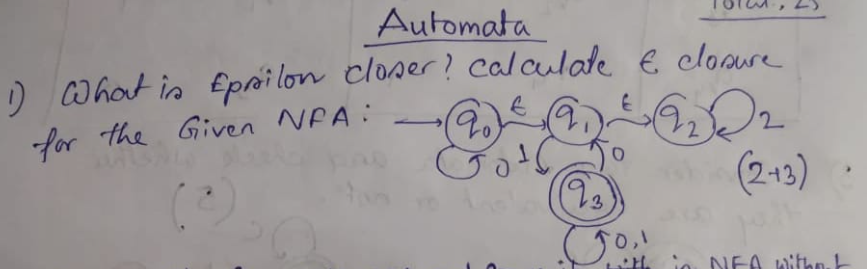 Total, 25
Automata
1) What is Epsilon closer? calculate ε closure
for the Given NFA: q0 ε q1 ε q2 2
0 1 0
q3 (2+3)
0,1
with in NFA without